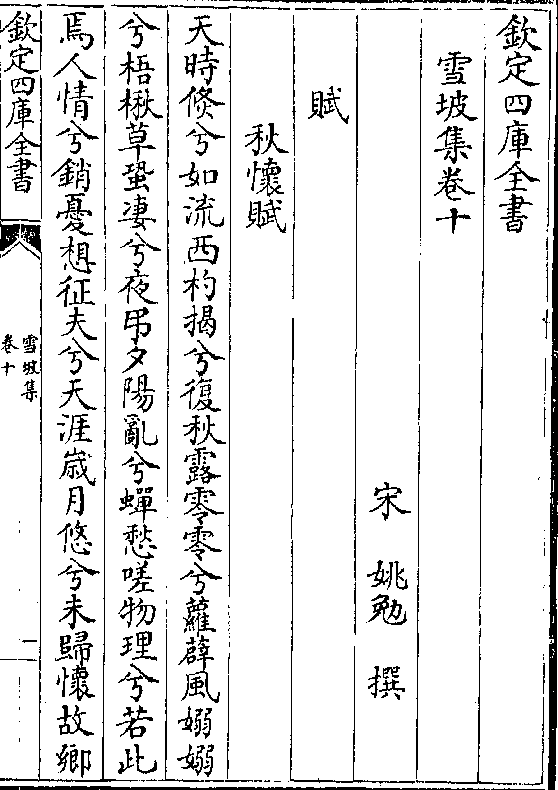 欽定四庫全書
雪坡集卷十
宋 姚勉 撰
賦
秋懷賦
天時倐兮如流西杓揭兮復秋露零零兮蘿薜風嫋嫋
兮梧楸草蛩凄兮夜弔夕陽亂兮蟬愁嗟物理兮若此
焉人情兮銷憂想征夫兮天涯歳月悠兮未歸懷故鄉
欽定四庫全書
雪坡集
卷十
一